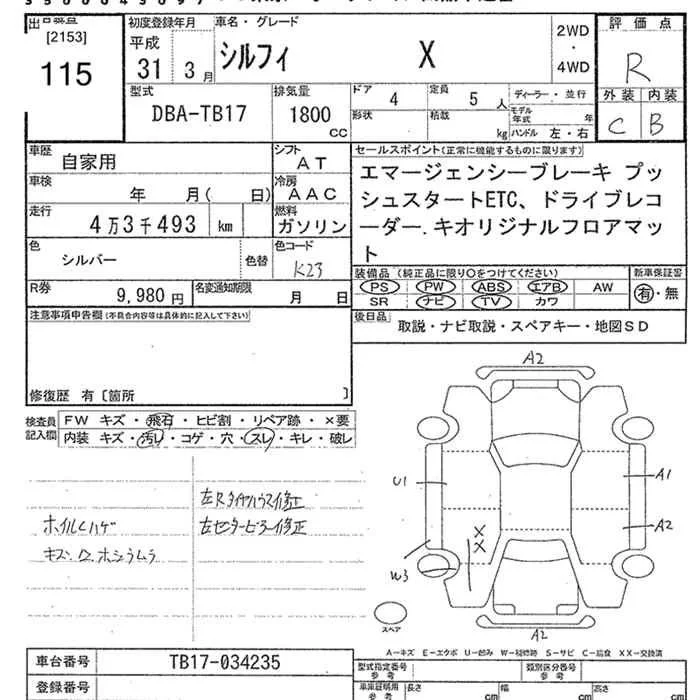 出品番号 初度登録年月 車名・グレード 評価点
[2153] 平成 2WD
115 31 3月 シルフィ X ・ R
4WD
型式 排気量 ドア 4 定員 5人 ディーラー・並行 外装 内装
DBA-TB17 1800 cc 形状 積載 kg モデル年式 年 C B
ハンドル 左・右
車歴 自家用 シフト AT セールスポイント(正常に機能するものに限ります)
車検 年 月( 日) 冷房 AAC エマージェンシーブレーキ プッ
走行 4万3千493 km 燃料 ガソリン シュスタートETC、ドライブレコ
色 シルバー 色替 色コード K23 ーダー.キオリジナルフロアマッ
ト
R券 9,980円 名変通知期限 月 日 装備品(純正品に限り○をつけてください) 新車保証書
PS PW ABS エアB AW 有・無
SR ナビ TV カワ
注意事項申告欄(不具合内容等は具体的に記入して下さい) 後日品 取説・ナビ取説・スペアキー・地図SD
修復歴 有〔箇所 〕
検査員記入欄 FW キズ・飛石・ヒビ割・リペア跡・×要
内装 キズ・汚レ・コゲ・穴・スレ・キレ・破レ
左Rタイヤハウス修正
ホイルCハゲ 左センターピラー修正
A2
U1 A1
A2
X
X
W3
スペア
A2
A-キズ E-エクボ U-凹み W-補修跡 S-サビ C-腐食 XX-交換済
車台番号 TB17-034235 型式指定番号 参考 類別区分番号 参考
登録番号 車庫証明用 参考 長さ cm 幅 cm 高さ cm